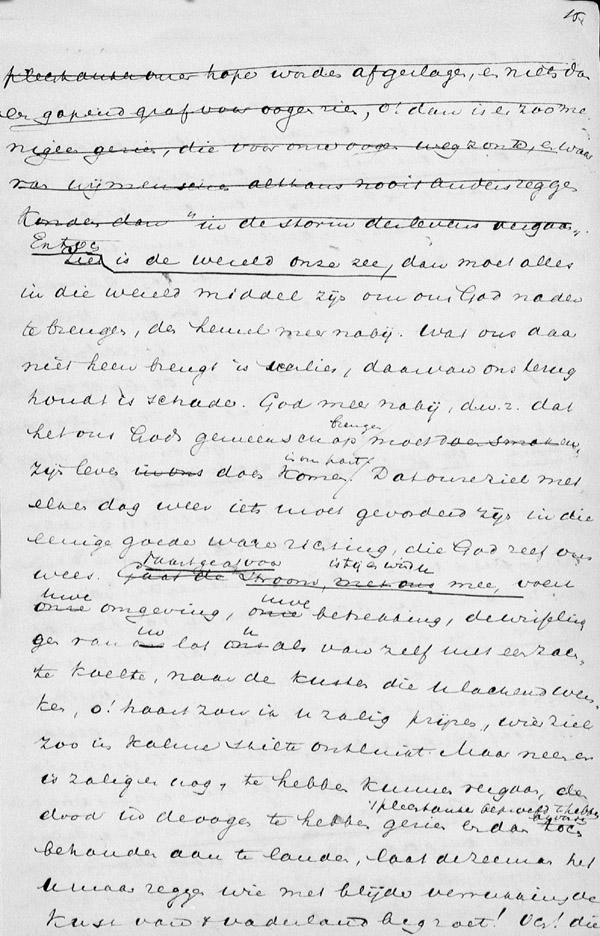 hope worden afgeslagen, en niets dan
een gapend graf voor oogen zien, o! dan is er zoo me
nigeen gezien, die voor onze oogen wegzonk, en waar
van wij menschen althans nooit anders zeggen
konden dan "in de storm des levens vergaan".
En toch
is de wereld onze zee, dan moet alles
in die wereld middel zijn om ons God nader
te brengen, den hemel meer nabij. Wat ons daar
niet heen brengt is verlies, daarvan ons terug
houdt is schade. God meer nabij, d.w.z. dat
brengen
het ons Gods gemeenschap moet doen smaken,
in ons hart
zijn leven in ons doen komen. Dat onze ziel met
elken dag weer iets moet gevorderd zijn in die
eenige goede ware richting, die God zelf ons
wees. Gaat de stroom met ons mee, voert
uwe uwe
onze omgeving, onze betrekking, de wisselin
uw u
gen van lot ons als van zelf met een zach
te koelte, naar de kusten die u lachend wen
ken, o! haast zou ik u zalig prijzen, wier ziel
zoo in kalme stilte ontluikt. Maar neen er
is zaliger nog, te hebben kunnen vergaan, den
dood in de oogen te hebben gezien en dan toch
behouden aan te landen, laat de zeeman het
u maar zeggen wie met blijde verrukking de
kust van 't vaderland begroet! Och! die